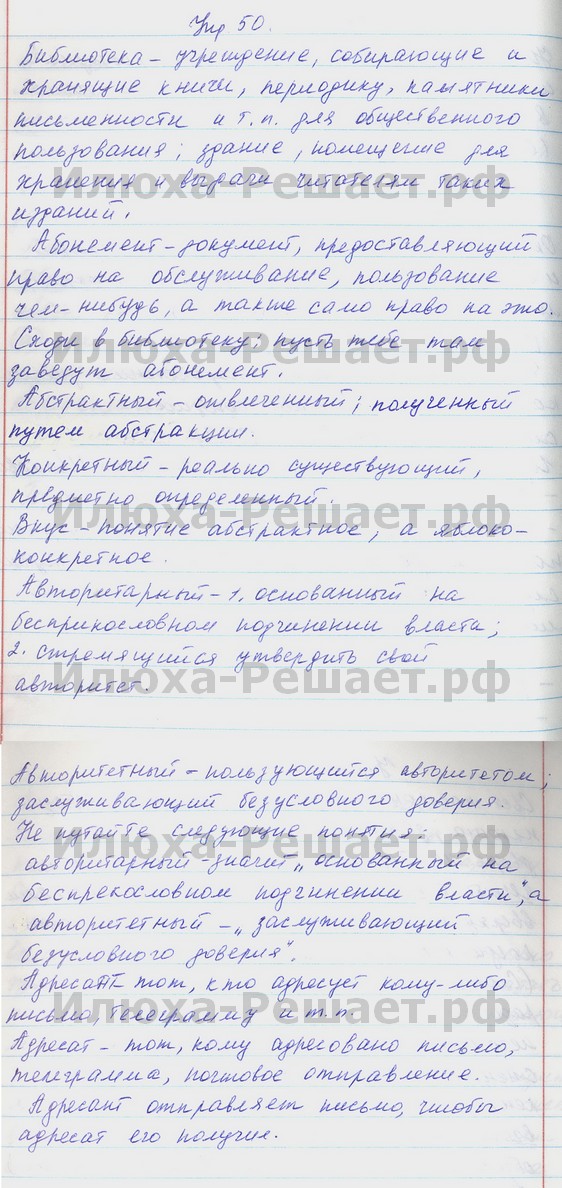 Упр 50.
Библиотека – учреждение, собирающие и
хранящие книги, периодику, памятники
письменности и т.п. для общественного
пользования; здание, помещение для
хранения и выдачи читателям таких
изданий.
Илюха-Решает.рф
Абонемент – документ, предоставляющий
право на обслуживание, пользование
чем-нибудь, а также само право на это.
Сходи в библиотеку: пусть тебе там
заведут абонемент.
Илюха-Решает.рф
Абстрактный – отвлеченный; полученный
путем абстракции.
Конкретный – реально существующий,
предметно определенный.
Илюха-Решает.рф
Вкус – понятие абстрактное, а яблоко –
конкретное.
Авторитарный – 1. основанный на
беспрекословном подчинении власти;
2. стремящийся утвердить свой
авторитет.
Илюха-Решает.рф
Авторитетный – пользующийся авторитетом;
заслуживающий безусловного доверия.
Не путайте следующие понятия:
Илюха-Решает.рф
авторитарный – значит „основанный на
беспрекословном подчинении власти", а
авторитетный – „заслуживающий
безусловного доверия".
Адресант – тот, кто адресует кому-либо
письмо, телеграмму и т.п.
Илюха-Решает.рф
Адресат – тот, кому адресовано письмо,
телеграмма, почтовое отправление.
Адресант отправляет письмо, чтобы
адресат его получил.